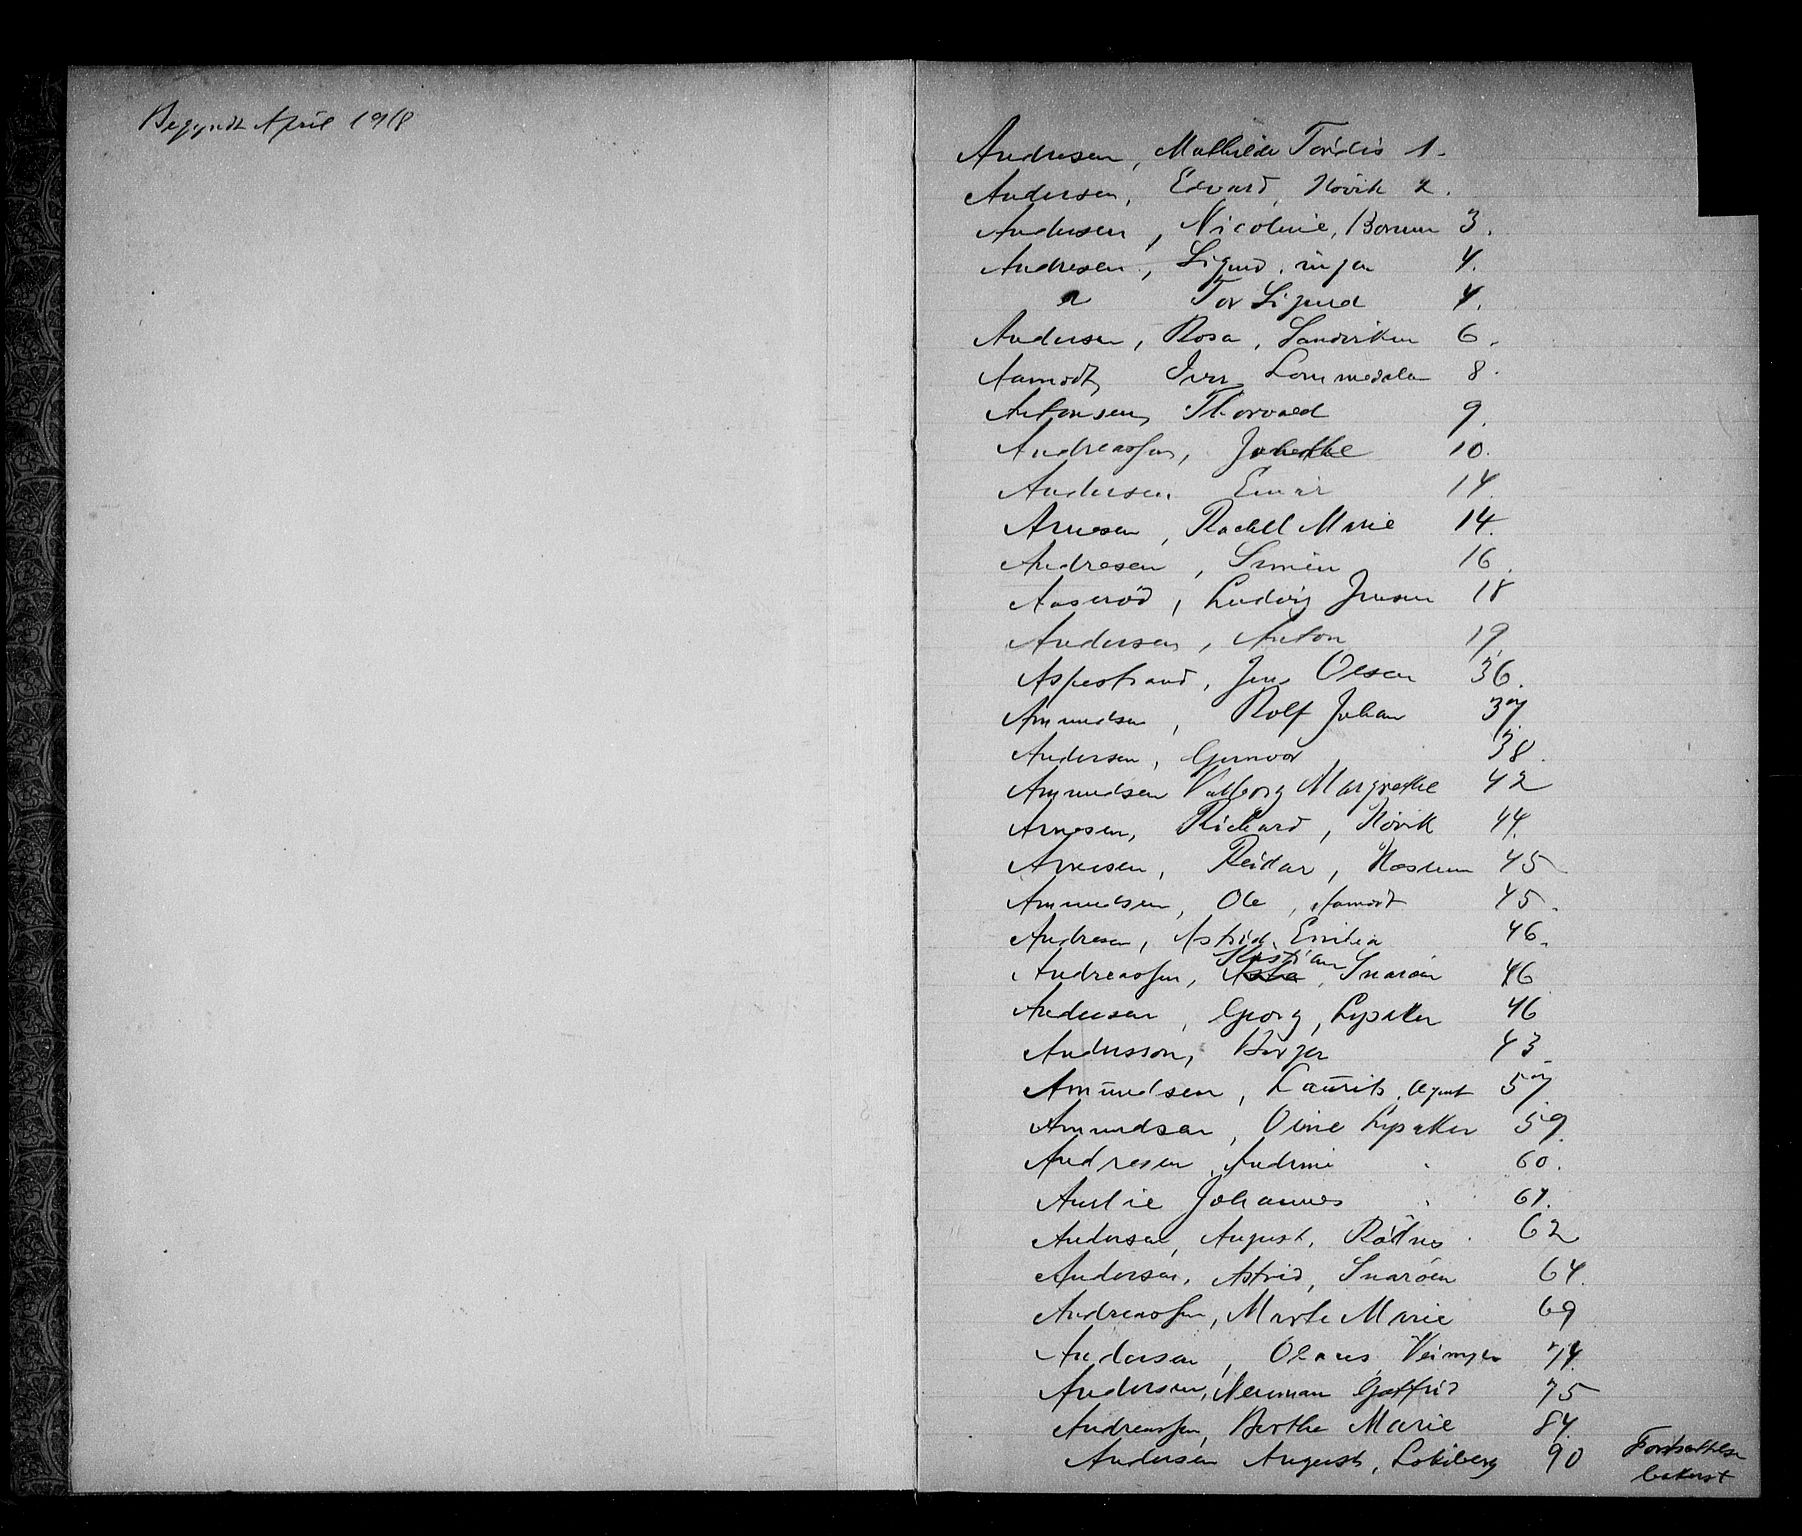 Begyndt April 1918
Andresen, Mathilde Tordis 1.
Andersen, Edvard, Hövik 2.
Andersen, Nicoline, Borum 3.
Andresen, Sigurd, 4.
" Tor Sigurd 4.
Andersen, Rosa, Sandviken 6.
Aamodt, Iver, Lommedalen 8.
Antonsen, Thorvald 9.
Andreassen, 10.
Andersen Einar 14.
Arnesen, Rachel Marie 14.
Andresen, Simen 16.
Aaseröd, Ludvig Jensen 18
Andersen, Anton 19.
Aspestrand, Jens Olsen 36.
Amundsen, Rolf Johan 37
Andersen, Gunvor 38.
Amundsen Valborg Margrethe 42
Arnesen, Richard, Hövik 44.
Arnesen, Reidar, Haslum 45
Amundsen, Ole, Aamodt 45.
Andresen, Astrid, Emilia 46.
Andreassen, Kristian, Snaröen 46
Andersen, Georg, Lysaker 46
Andersson, Birger 43.
Amundsen, Laurits, Agent 57.
Amundsen, Oline Lysaker 59.
Andresen, Andrine " 60.
Amlie Johannes " 61.
Andersen, August, 62
Andersen, Astrid, Snaröen 64.
Andreassen, Marte Marie 69
Andersen, Olaus, 74.
Andersen, Herman Gotfrid 75
Andreassen, Berthe Marie 84.
Andersen August, Lökeberg 90
Fortsættelse
bakerst